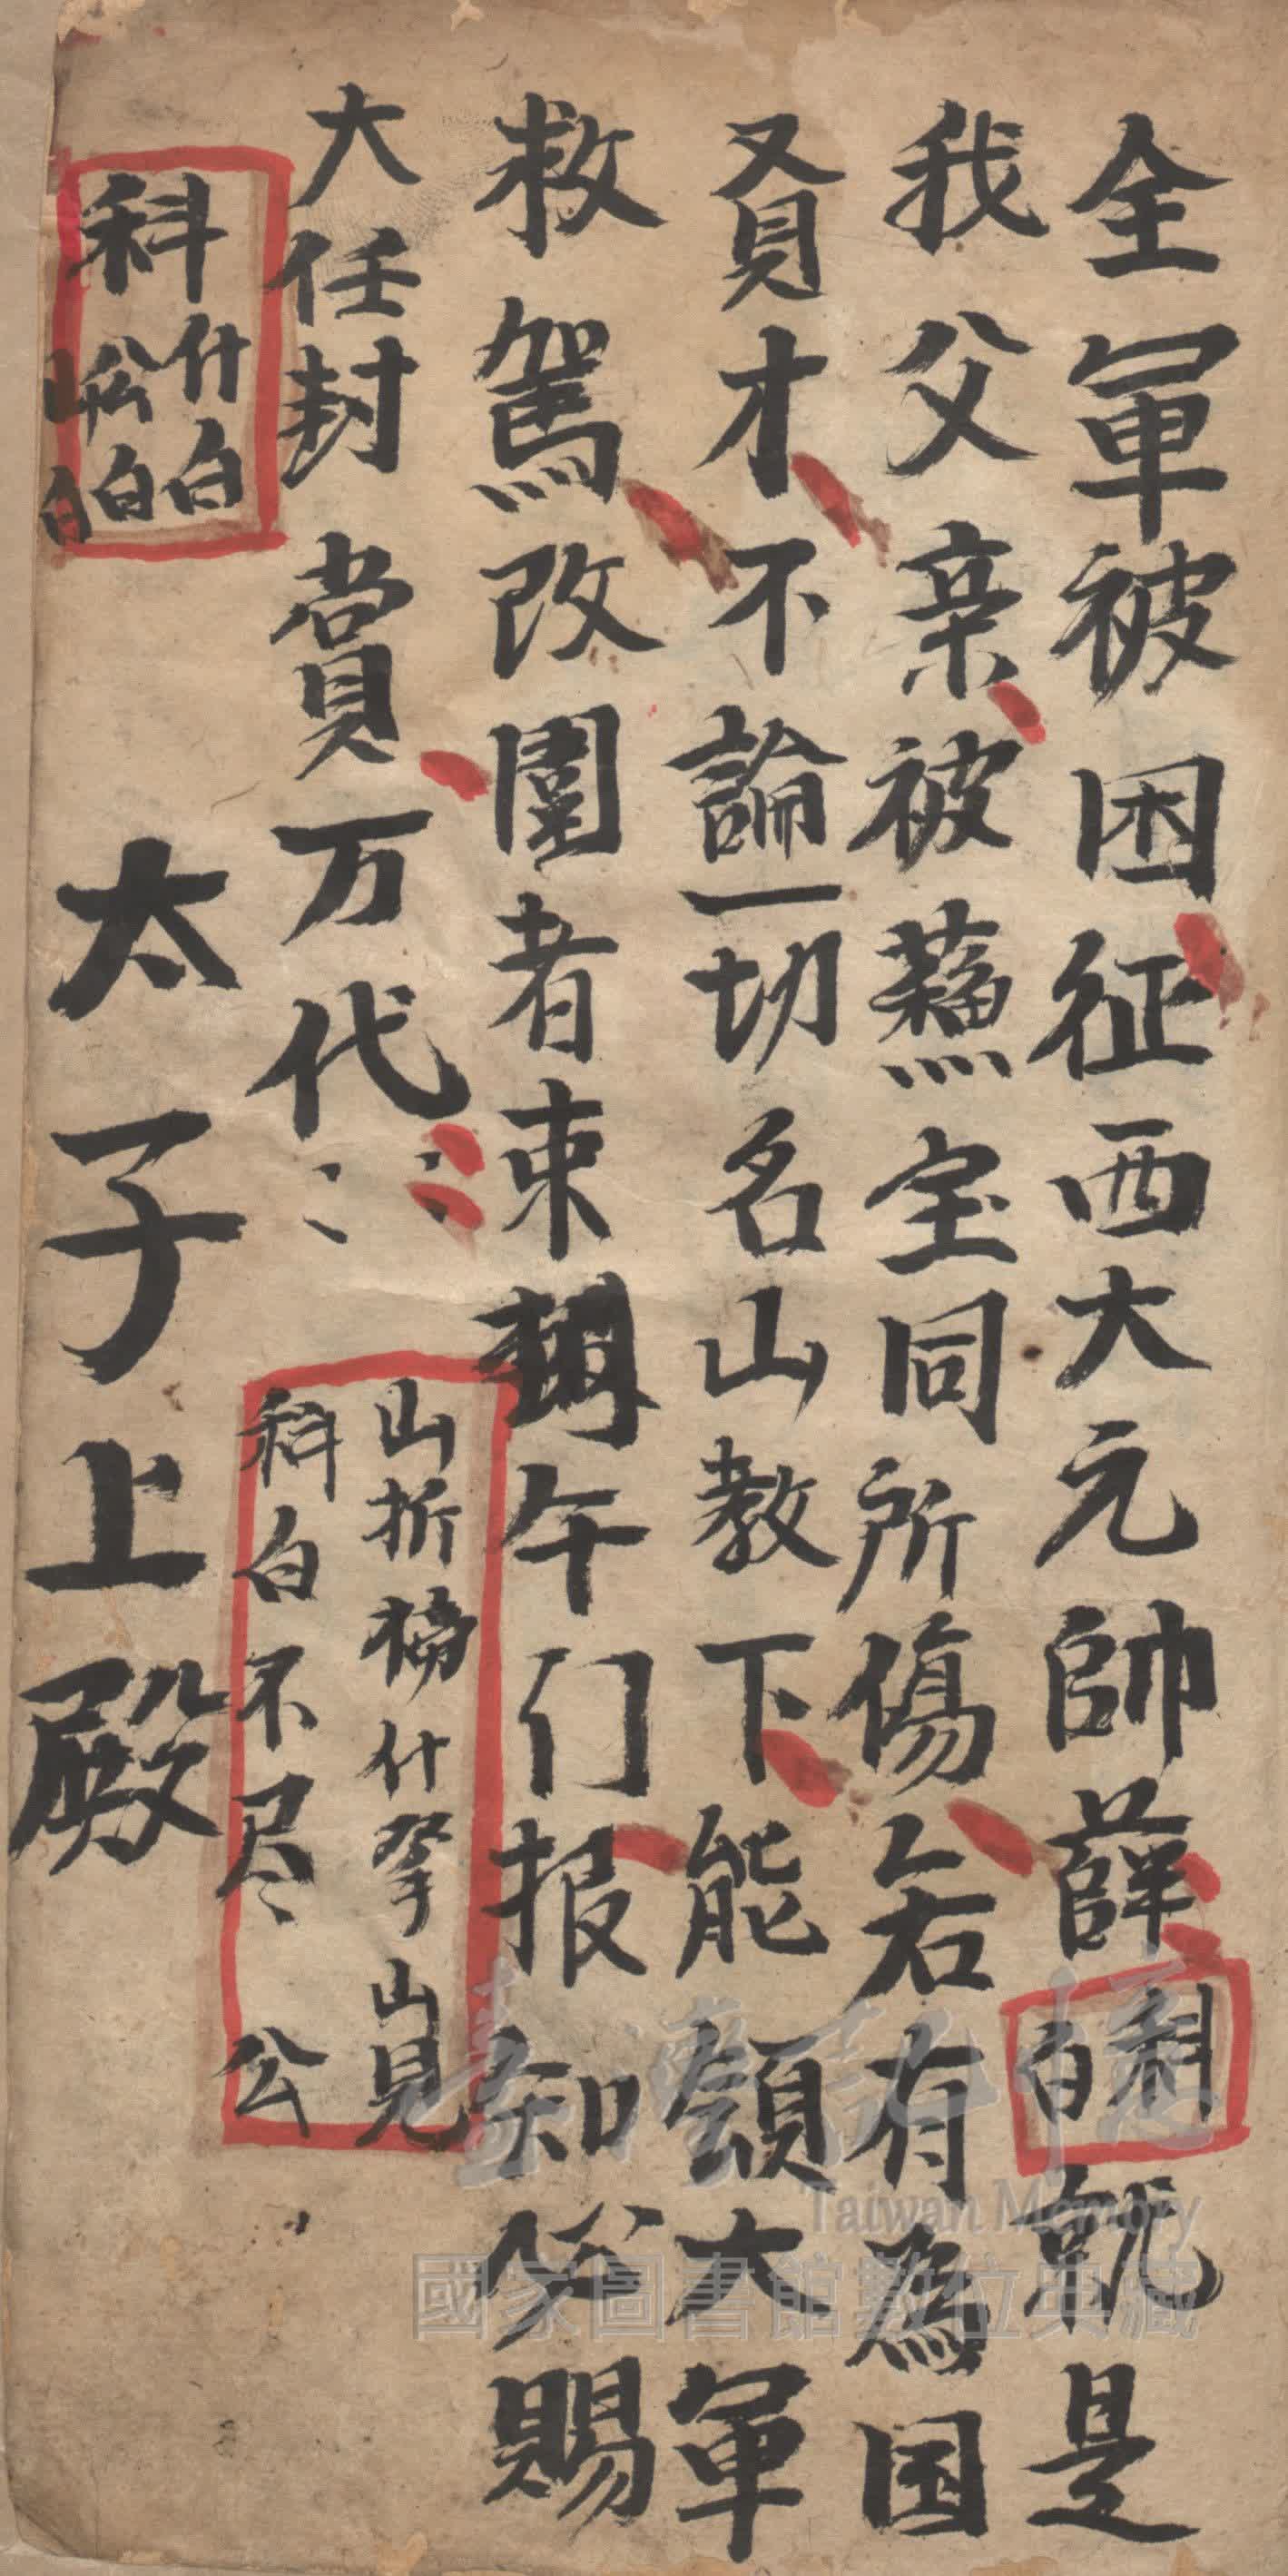 全軍被困征西大元帥薛科白就是
我父亲被蘓宝同所傷若有為国
賢才不論一切名山教下能領大軍
救駕改圍者束朝午门报知必賜
大任封賞万代〻〻
山折榜什拏山見
科白不尽 公
科什白公白山白
太子上殿
臺灣記憶
Taiwan Memory
國家圖書館數位典藏